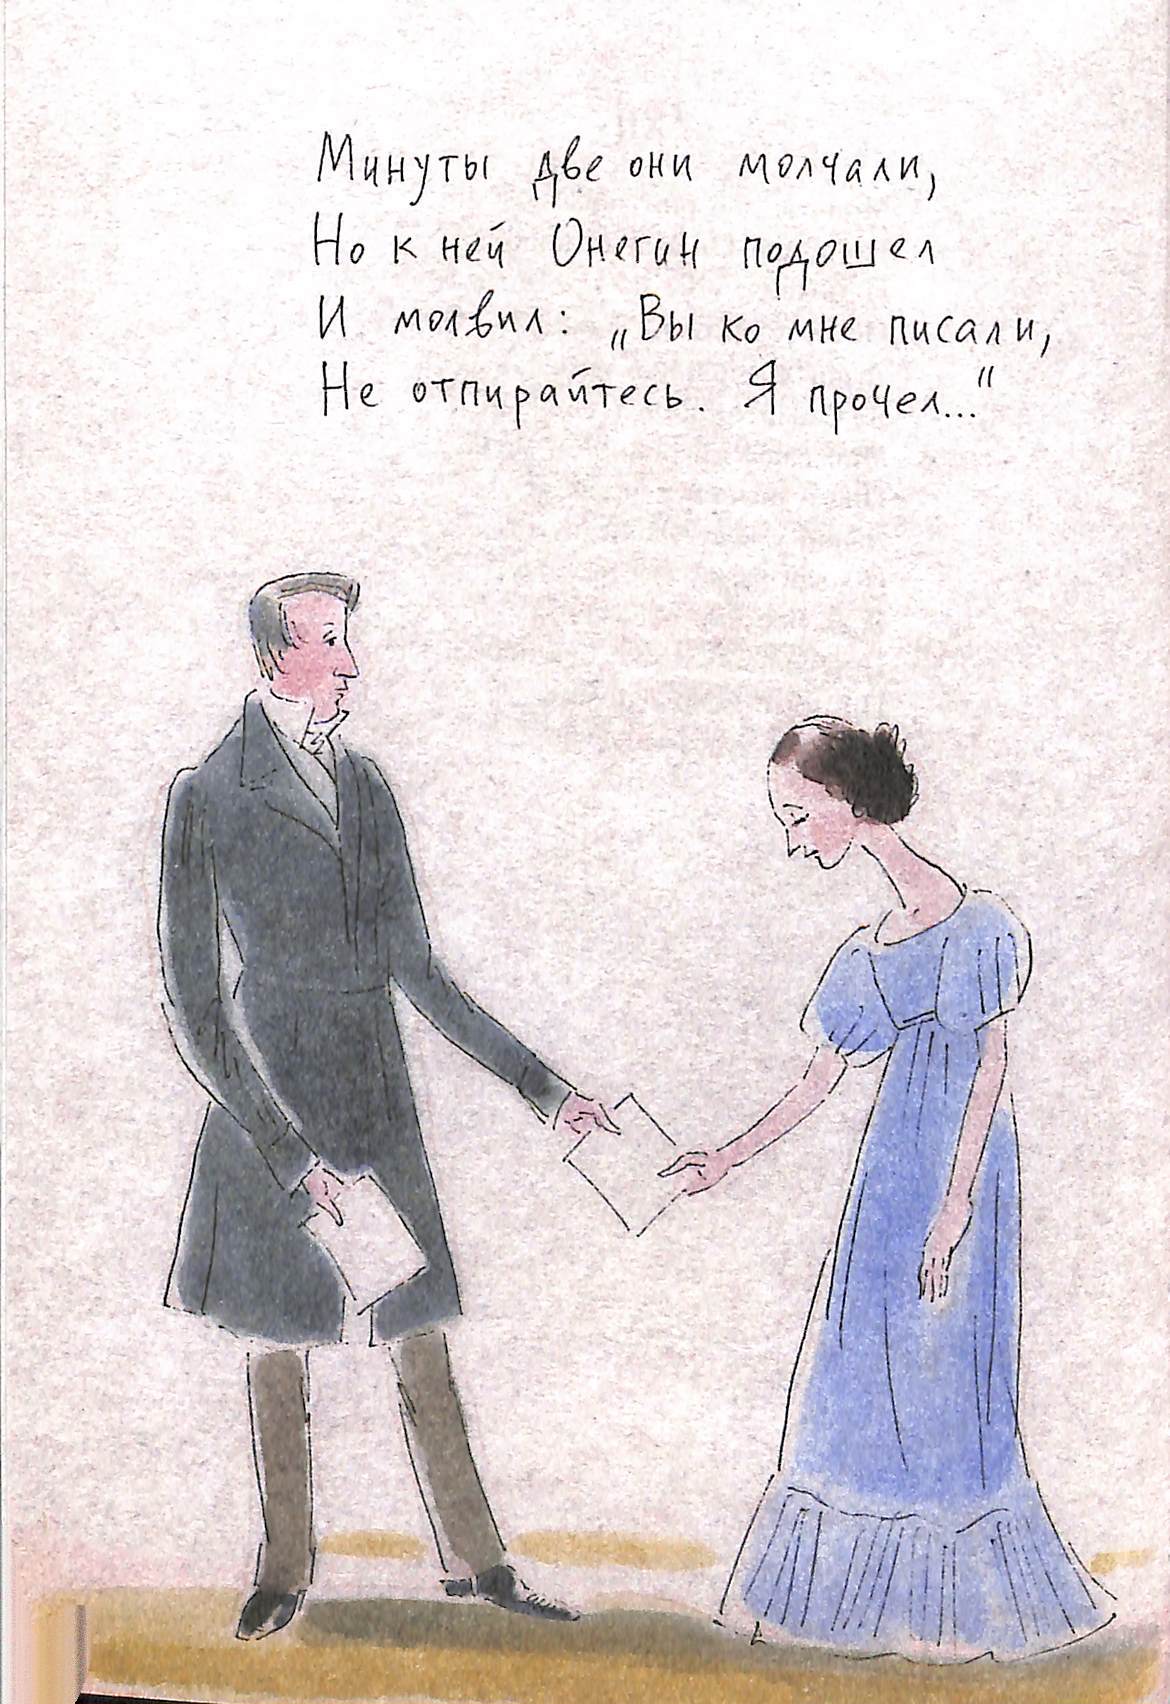 Минуты две они молчали,
Но к ней Онегин подошел
И молвил: „Вы ко мне писали,
Не отпирайтесь. Я прочел..."